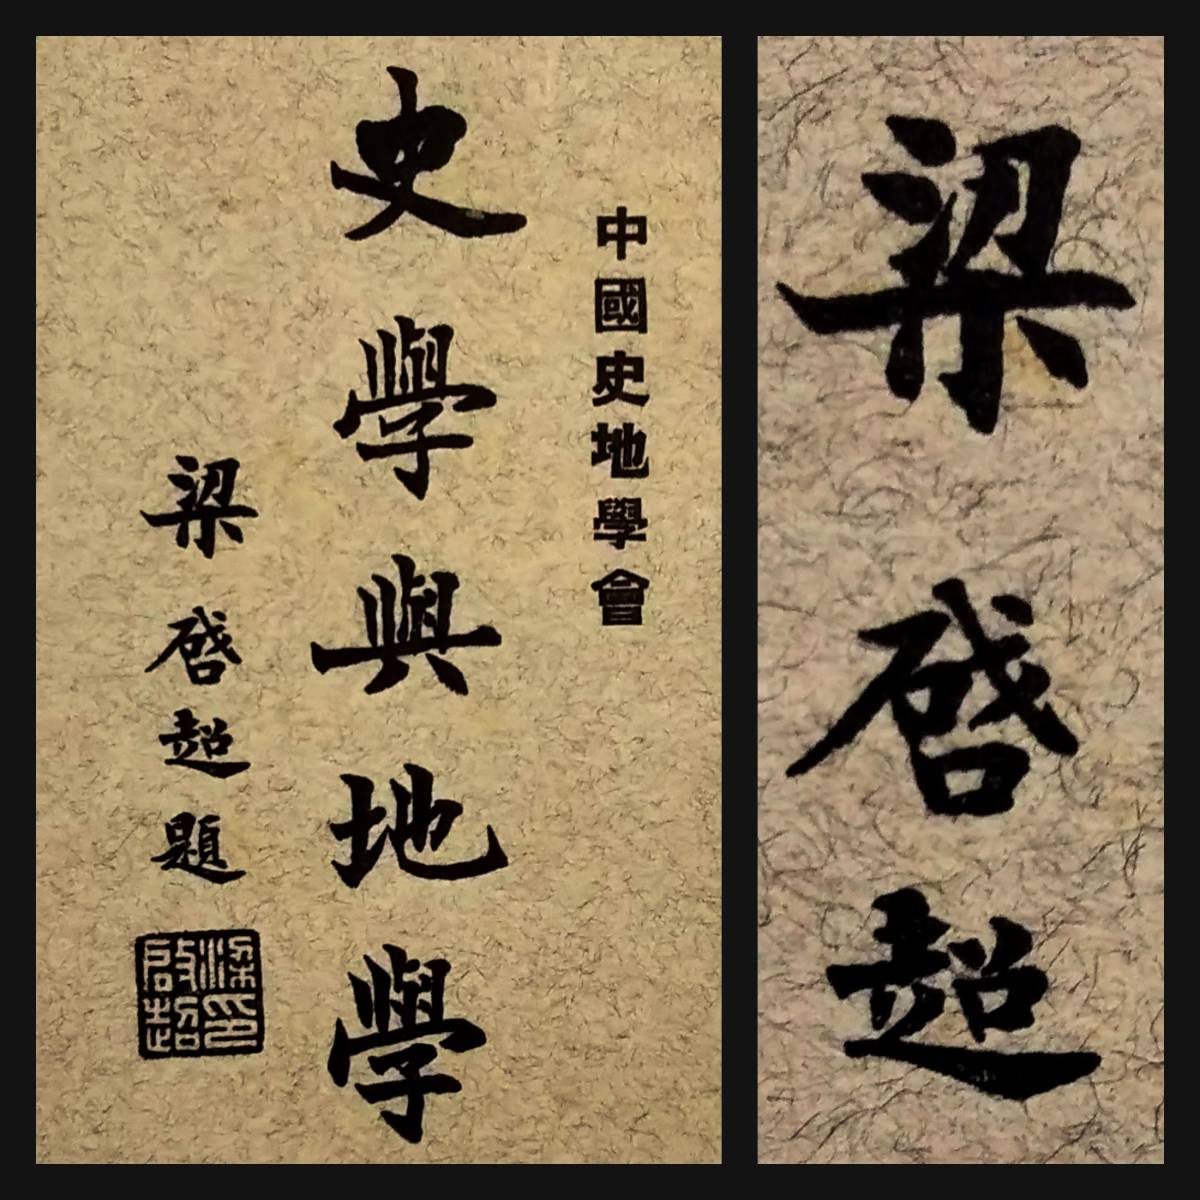 中國史地學會
史學與地學
梁啓超題
梁印啟超
梁啓超